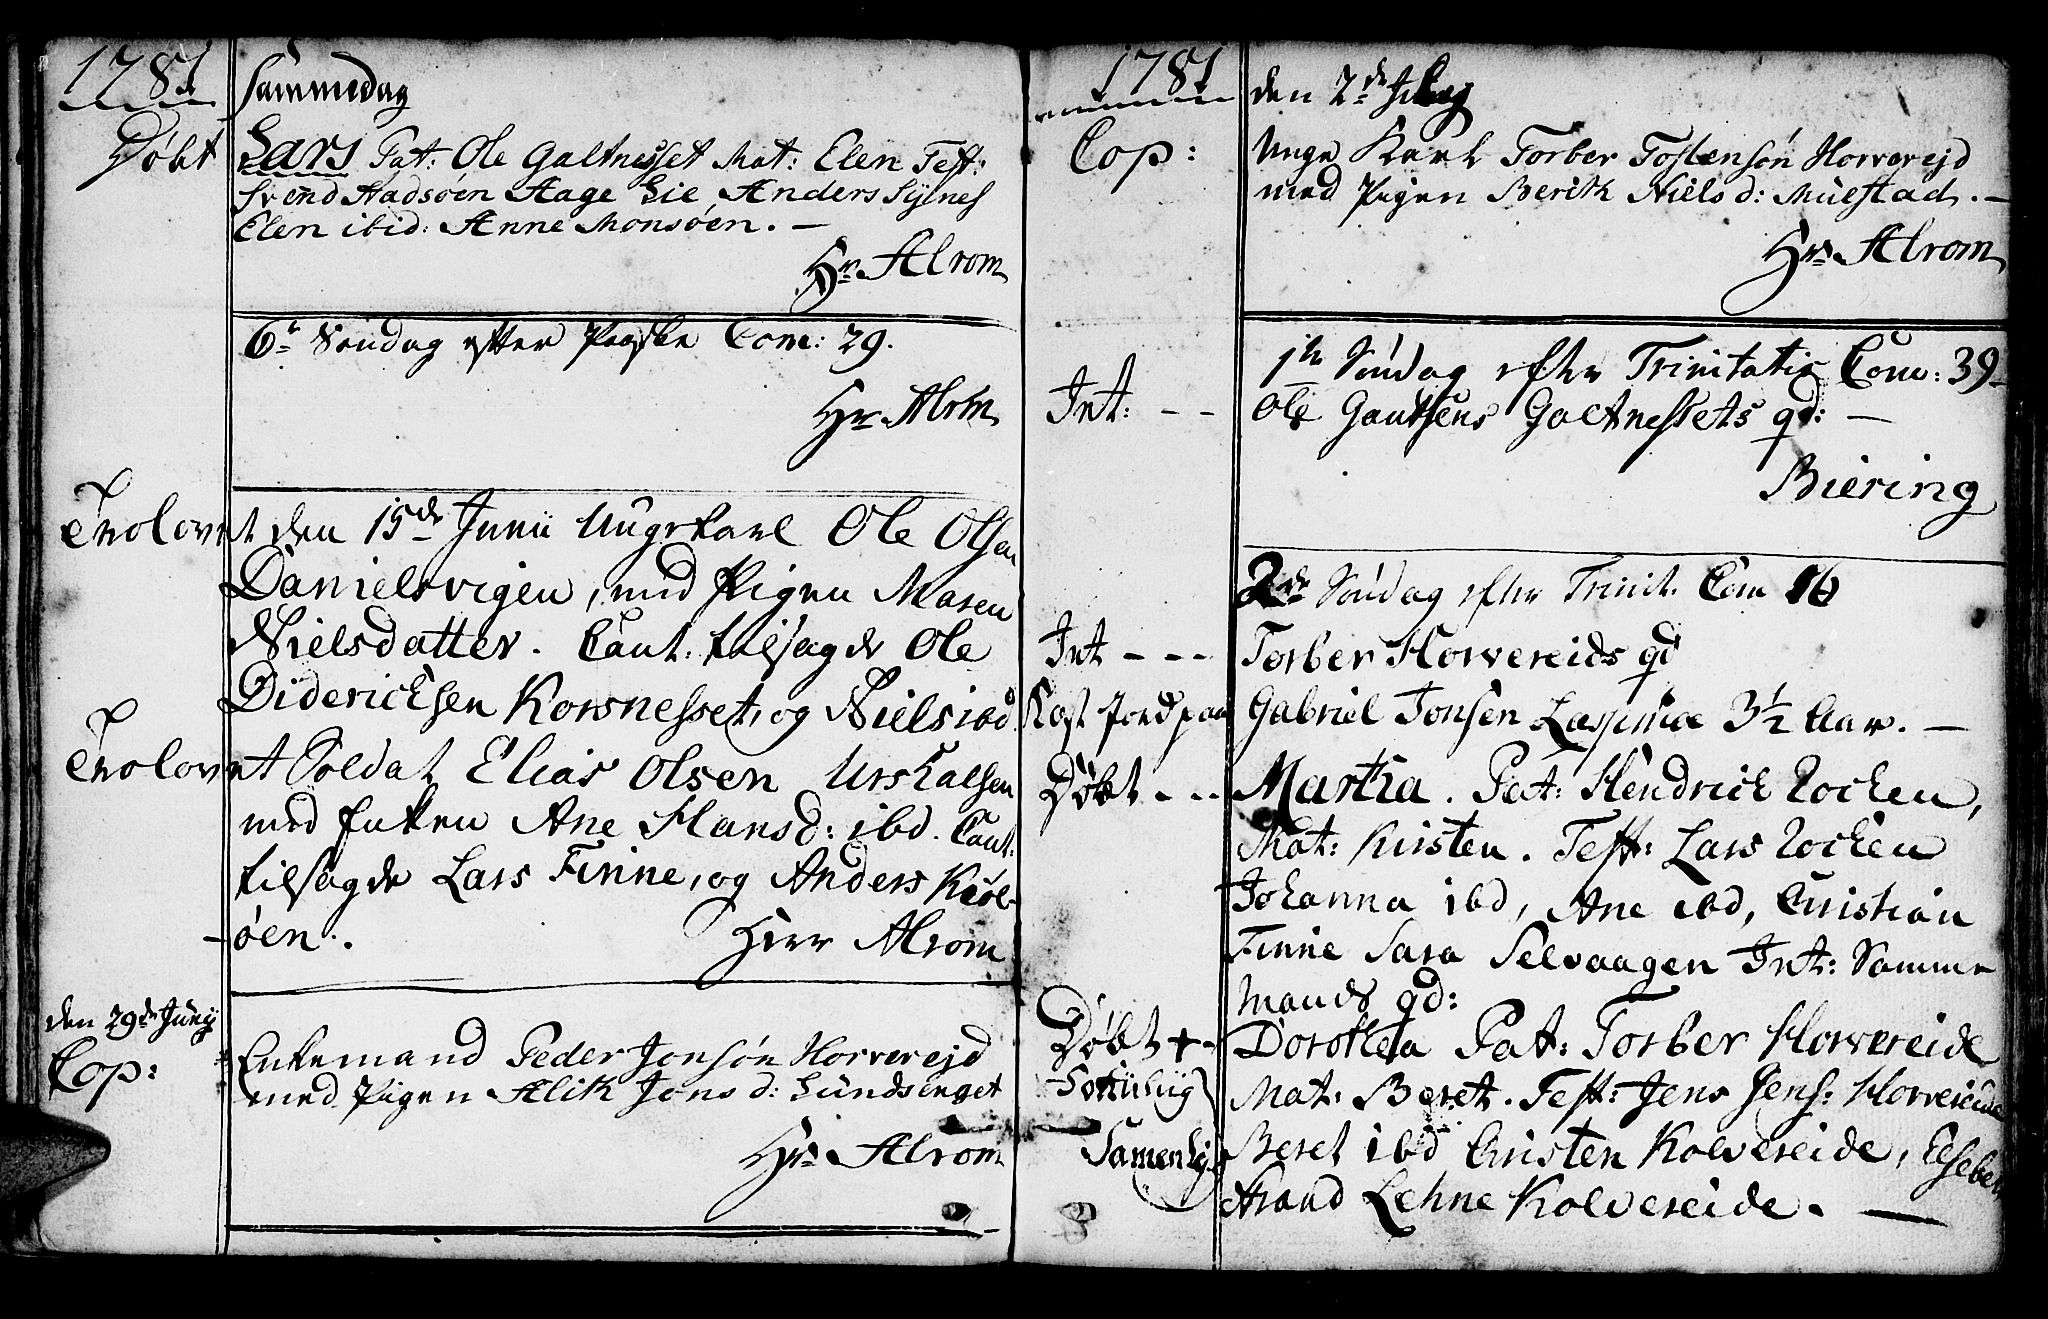 1781
Sammedag
Døbt
Lars Pat: Ole Galtnesset Mat: Elen Test:
Svend Stadsøen Aage Lie Anders Sylnes
Elen ibid: Anne Monsøen. —
Hr Alrom
6te Søndag efter Paaske Com: 29.
Hr Alrom
Trolovet den 15de Junii Ungekarl Ole Olsen
Danielsvigen, med Pigen Maren
Nielsdatter. Caut. tilsagde Ole
Diderichsen Korsnesset, og Niels ibd
Trolovet Soldat Elias Olsen Urshalsen
med Enken Ane Hansd: ibd. Caut:
tilsagde Lars Finne, og Anders Kiøl-
øen. Herr Alrom
den 29de Junij
Cop:
Enkemand Peder Jonsøn Horverejd
med Pigen Alik Jons d: Lundsenget
Hr Alrom
1781
den 2de
Cop:
Unge Karl Torber Tostensøn Horverejd
med Pigen Berith Niels d: Muestad. —
Hr Alrom
1te Søndag efter Trinitatis Com: 39
Int: - - Ole Gautsens Galtnessets qd: —
Biering
2de Søndag efter Trinit. Com 16
Int - - - Torber Horvereids qd
Kast Jord paa Gabriel Jonsen 3½ Aar. —
Døbt - - - Martha. Pat: Hendrich Rochen,
Mat: Kirsten. Test: Lars Rochen
Johanna ibd, Ane ibd, Christian
Finne Sara Selvaagen Int: Samme
Mands qd:
Døbt + - Dorothea Pat: Torber Horvereide
Mat: Beret. Test: Jens Jens: Horvereide
Beret ibd Christen Kolvereide, Elsebe
Strand Lehne Kolvereide. —